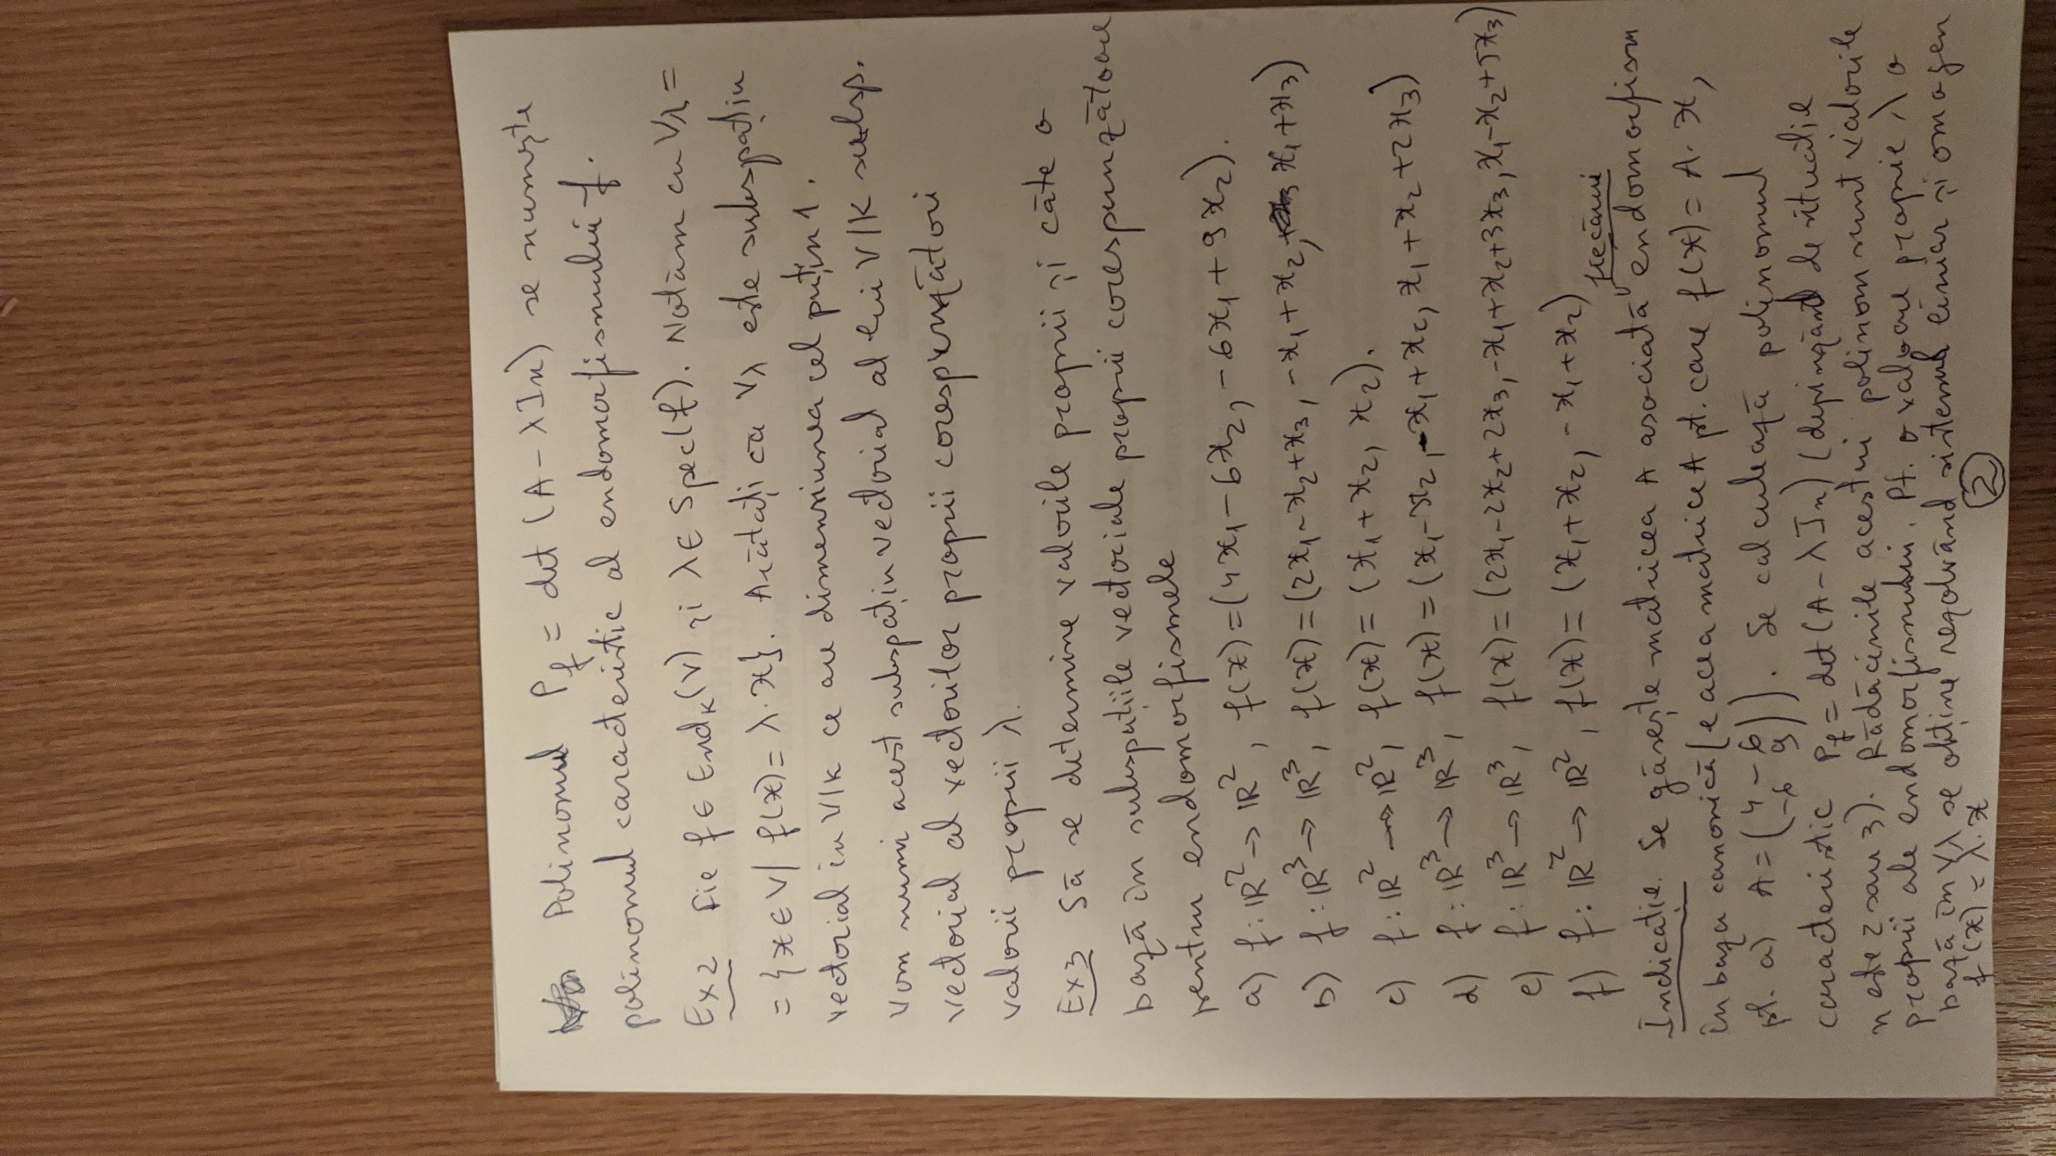 Polinomul P_f = det (A - λIn) se numește
polinomul caracteristic al endomorfismului f.
Ex2 Fie f ∈ End_K(V) și λ ∈ Spec(f). Notăm cu Vλ =
= {x ∈ V / f(x) = λ·x}. Arătați că Vλ este subspațiu
vectorial în V/K ce are dimensiunea cel puțin 1.
Vom numi acest subspațiu vectorial al lui V/K subsp.
vectorial al vectorilor proprii corespunzători
valorii proprii λ.
Ex3 Să se determine valorile proprii și câte o
bază în subspațiile vectoriale proprii corespunzătoare
pentru endomorfismele
a) f: ℝ² → ℝ², f(x) = (4x₁ - 6x₂, -6x₁ + 9x₂).
b) f: ℝ³ → ℝ³, f(x) = (2x₁ - x₂ + x₃, -x₁ + x₂, x₁ + x₃)
c) f: ℝ² → ℝ², f(x) = (x₁ + x₂, x₂).
d) f: ℝ³ → ℝ³, f(x) = (x₁ - x₂, -x₁ + x₂, x₁ + x₂ + 2x₃)
e) f: ℝ³ → ℝ³, f(x) = (2x₁ - 2x₂ + 2x₃, -x₁ + x₂ + 3x₃, x₁ - x₂ + 5x₃)
f) f: ℝ² → ℝ², f(x) = (x₁ + x₂, -x₁ + x₂)
fiecărui
Indicație. Se găsește matricea A asociată endomorfism
în baza canonică (e acea matrice A pt. care f(x) = A·x,
pt. a) A = (4 -6
-6 9)). Se calculează polinomul
caracteristic P_f = det (A - λIn) (depinzând de situație
n este 2 sau 3). Rădăcinile acestui polinom sunt valorile
proprii ale endomorfismului. Pt. o valoare proprie λ o
bază în Vλ se obține rezolvând sistemul liniar și omogen
f(x) = λ·x
2